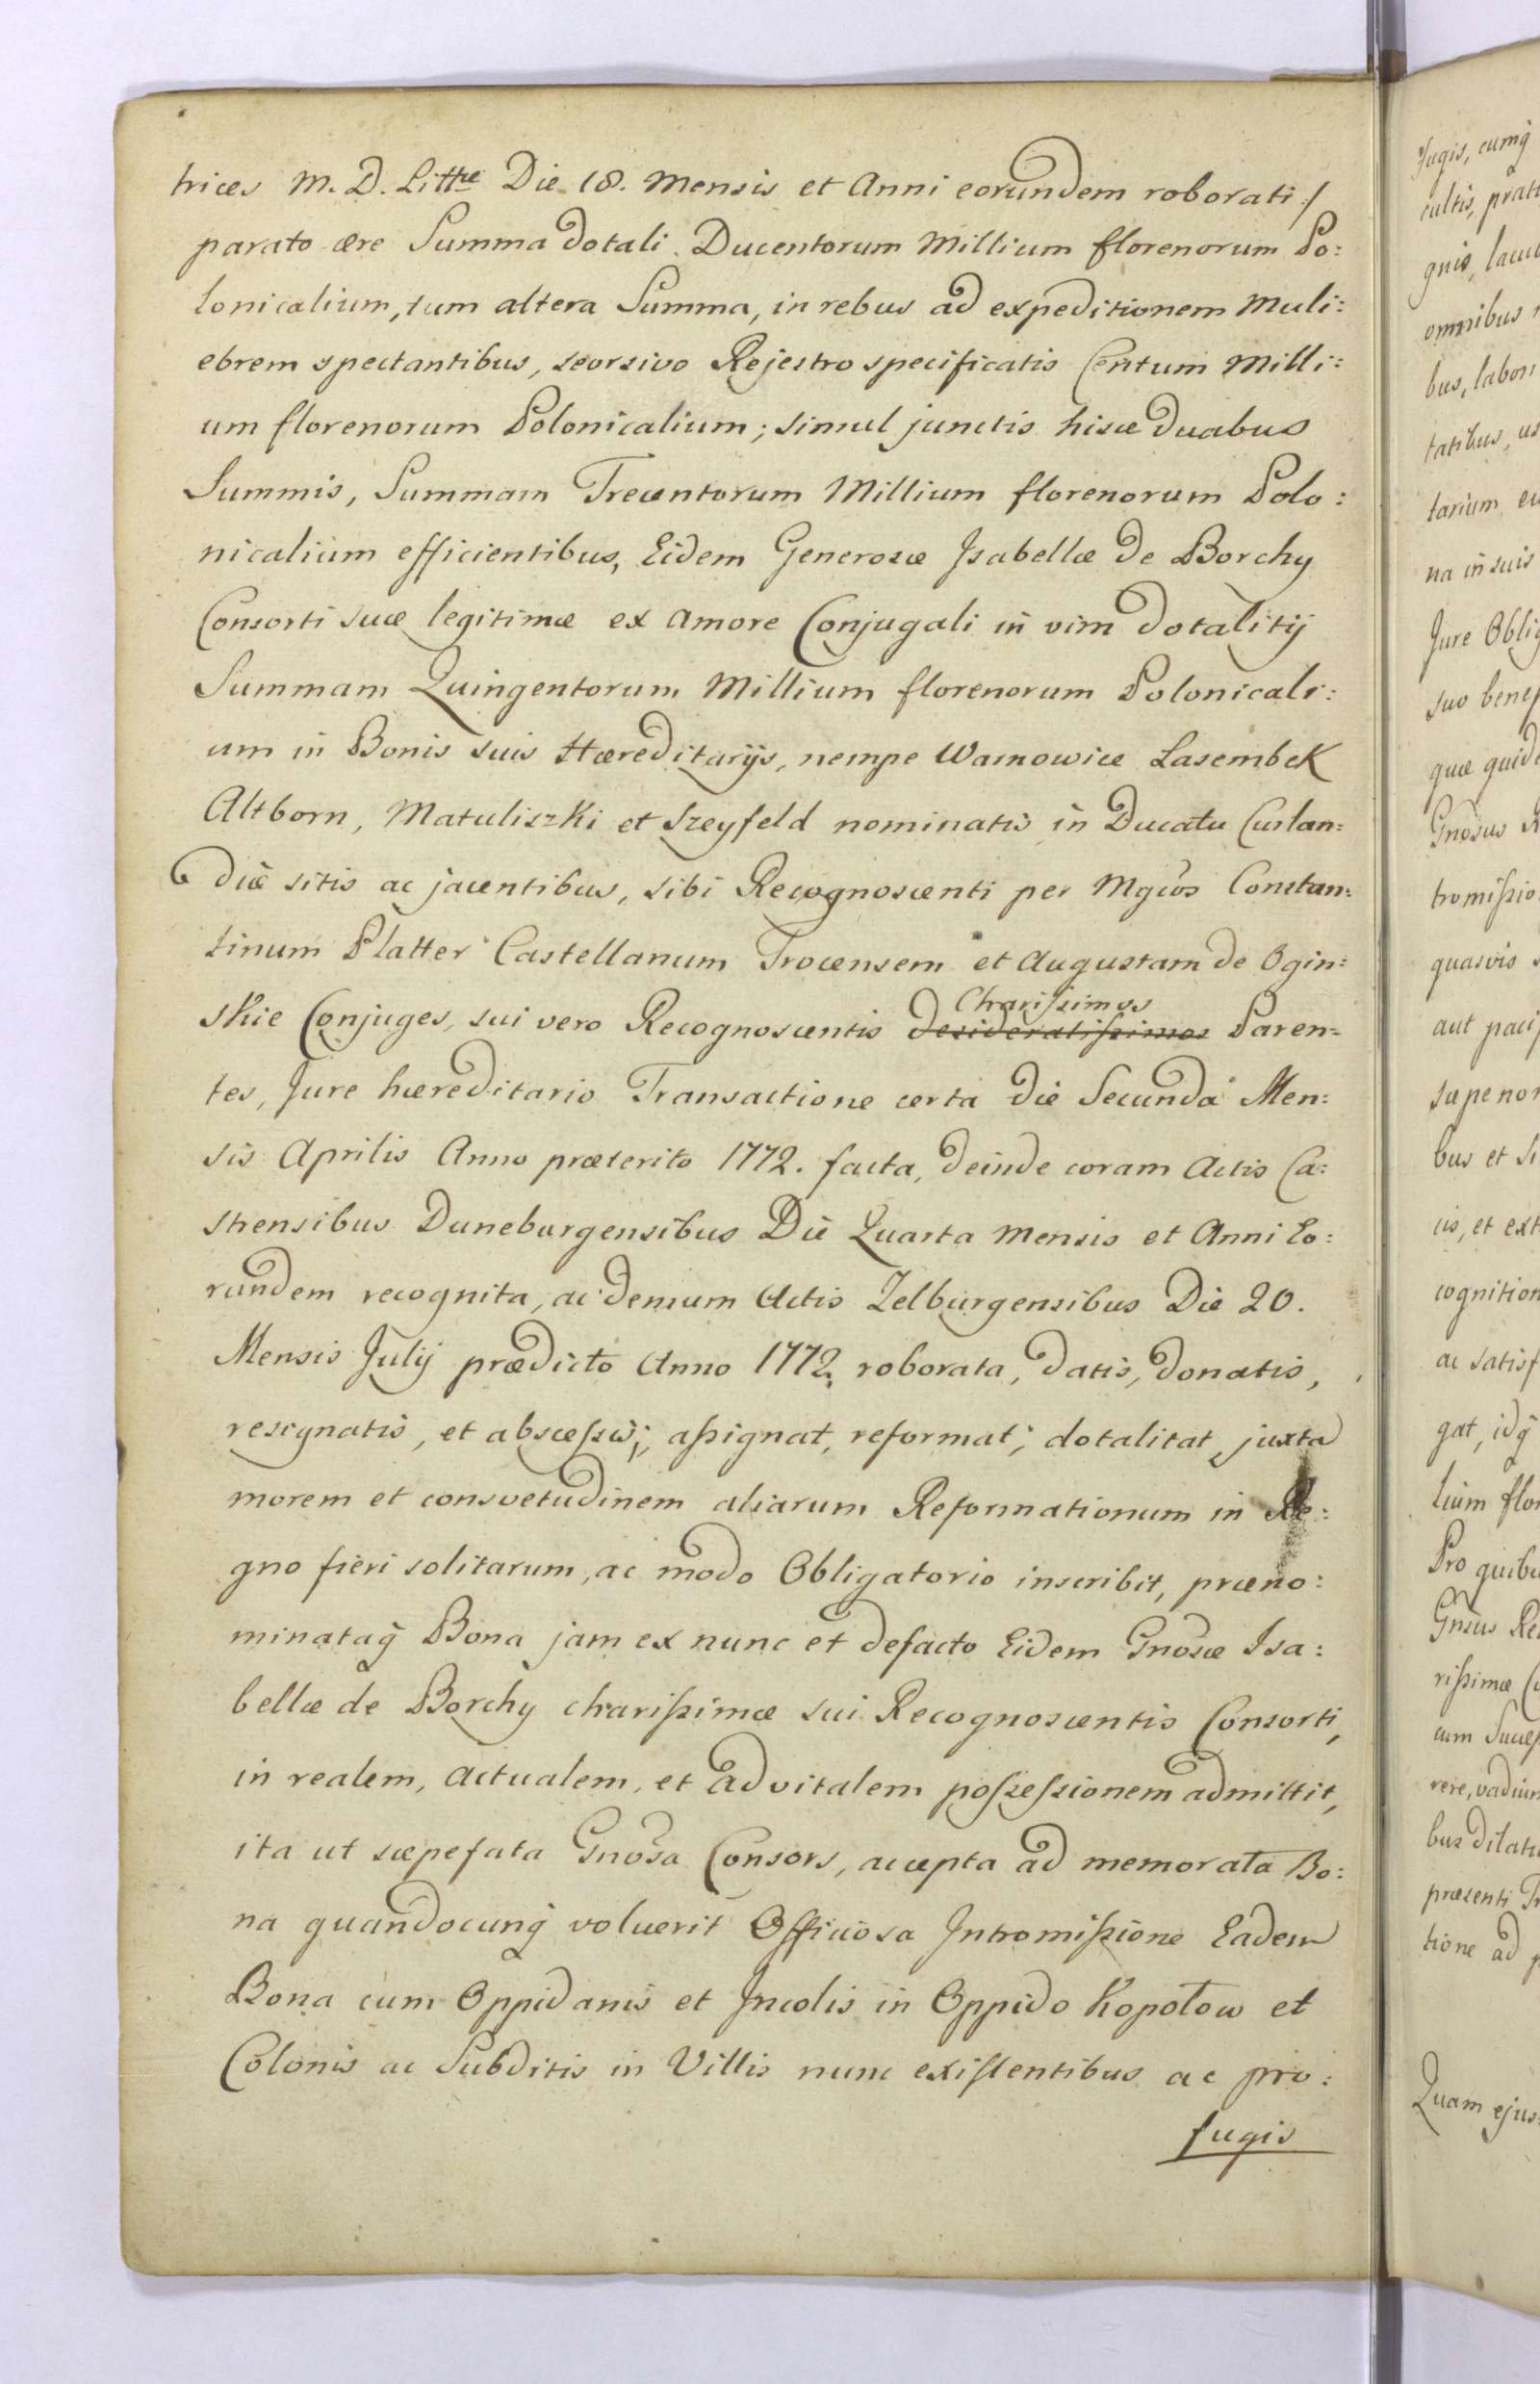 trices M. D. Littuae Die 18. Mensis et Anni eorundem roborati :/
parato ære Summa dotali Ducentorum Millium florenorum Po:
lonicalium, tum altera Summa, in rebus ad expeditionem Muli:
ebrem spectantibus, seorsivo Rejestro specificatis Centum Milli:
um florenorum Polonicalium; simul junctis hisce duabus
Summis, Summam Trecentorum Millium florenorum Polo:
nicalium efficientibus, Eidem Generosæ Isabellæ de Borchy
Consorti suæ legitimæ ex amore Conjugali in vim dotalitij
Summam Quingentorum Millium florenorum Polonicali:
um in Bonis suis Hæreditarijs, nempe Warnowice Lasembek
Altborn, Matuliszki et Szeyfeld nominatis in Ducatu Curlan:
diæ sitis ac jacentibus, sibi Recognoscenti per Mgcos Constan:
tinum Platter Castellanum Trocensem et Augustam de Ogin:
Charissimos
skie Conjuges, sui vero Recognoscentis desideratissimos Paren:
tes, Jure hæreditario Transactione certa die Secunda Men:
sis Aprilis Anno præterito 1772. facta, deinde coram Actis Ca:
strensibus Duneburgensibus Die Quarta Mensis et Anni Eo:
rundem recognita, ac demum Actis Zelburgensibus Die 20.
Mensis Julij prædicto Anno 1772. roborata, datis, donatis,
resignatis, et abscessis; assignat, reformat, dotalitat juxta
morem et consvetudinem aliarum Reformationum in Re:
gno fieri solitarum, ac modo Obligatorio inscribit, præno:
minataq̃ Bona jam ex nunc et defacto Eidem Gnosæ Isa:
bellæ de Borchy charissimæ sui Recognoscentis Consorti,
in realem, actualem, et advitalem possessionem admittit,
ita ut sæpefata Gnosa Consors, accepta ad memorata Bo:
na quandocunq̃ voluerit Officiosa Intromissione Eadem
Bona cum Oppidanis et Incolis in Oppido Kopołow et
Colonis ac Subditis in Villis nunc existentibus ac pro:
fugis